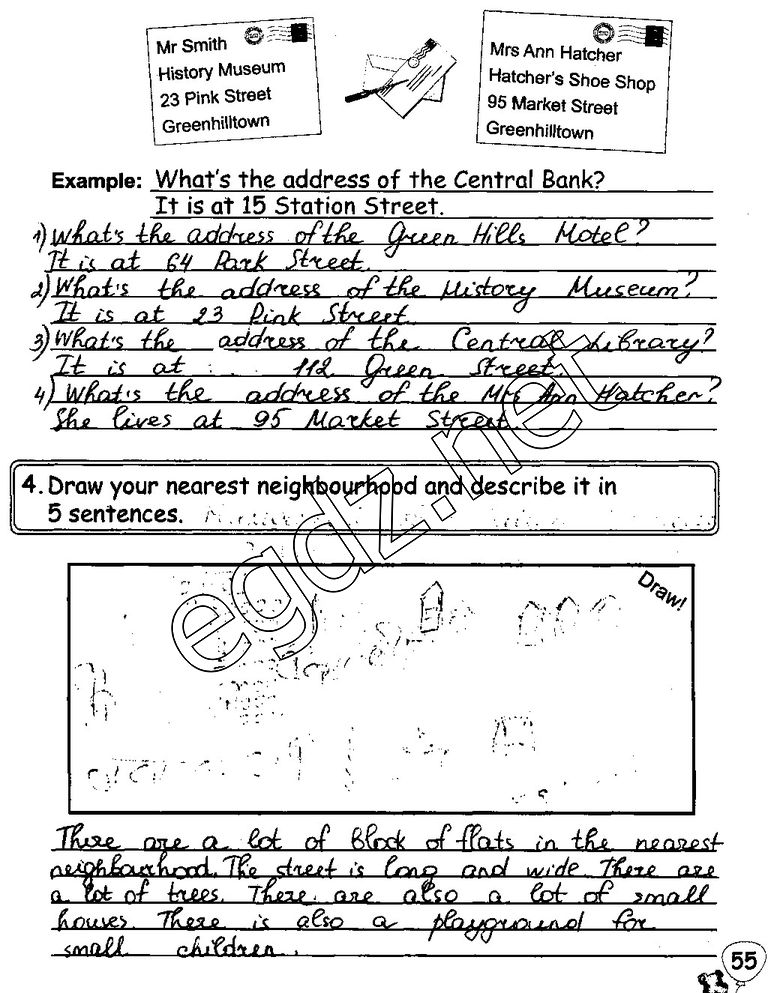 Mr Smith
History Museum
23 Pink Street
Greenhilltown
Mrs Ann Hatcher
Hatcher's Shoe Shop
95 Market Street
Greenhilltown
Example: What's the address of the Central Bank?
It is at 15 Station Street.
1) What's the address of the Green Hills Motel?
It is at 64 Park Street.
2) What's the address of the History Museum?
It is at 23 Pink Street
3) What's the address of the Central Library?
It is at ... 112 Green Street.
4) What's the address of the Mrs Ann Hatcher?
She lives at 95 Market Street
4. Draw your nearest neighbourhood and describe it in
5 sentences.
Draw!
egdz.net
There are a lot of Block of flats in the nearest
neighbourhood. The street is long and wide. There are
a lot of trees. There are also a lot of small
houses. There is also a playground for
small children.
55